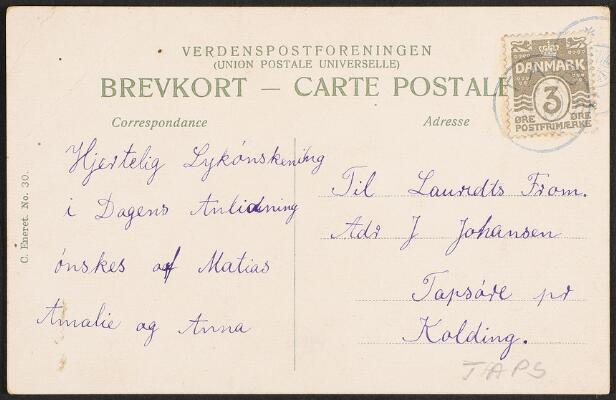 VERDENSPOSTFORENINGEN
(UNION POSTALE UNIVERSELLE)
BREVKORT — CARTE POSTALE
DANMARK
3
ØRE ØRE
POSTFRIMÆRKE
Correspondance
Adresse
Hjertelig Lykønskening
i Dagens Anlidning
ønskes af Matias
Amalie og Anna
Til Lauridts From.
Adr J Johansen
Tapsøre pr
Kolding.
TAPS
C. Eneret. No. 30.